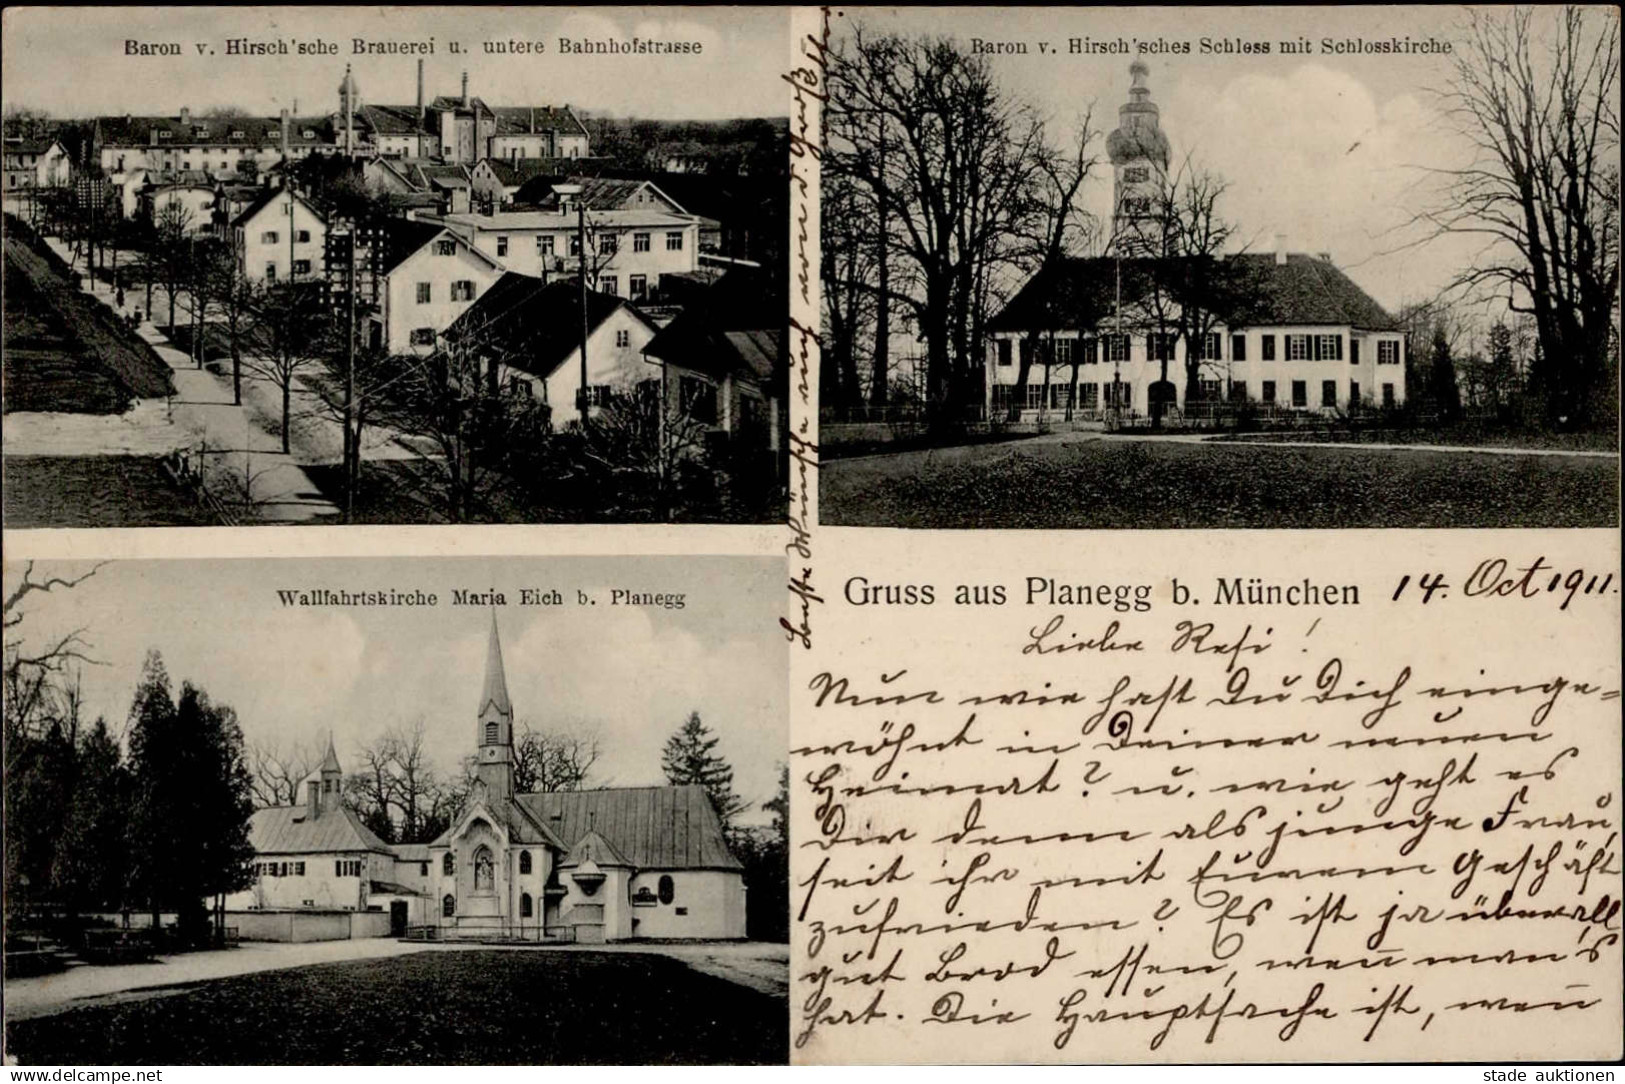 Baron v. Hirsch'sche Brauerei u. untere Bahnhofstrasse
Baron v. Hirsch'sches Schloss mit Schlosskirche
Wallfahrtskirche Maria Eich b. Planegg
Gruss aus Planegg b. München 14. Oct 1911.
Liebe Resi!
Nun wie hast Du Dich einge=
wöhnt in Deiner neuen
Heimat? u. wie geht es
Dir denn als junge Frau,
seit ihr mit Eurem Geschäft
zufrieden? Es ist ja überall
gut Brod essen, wen̅ man's
hat. Die Hauptsache ist, wen̅
Wünsche auch von d. Groß
delcampe.net
stade auktionen